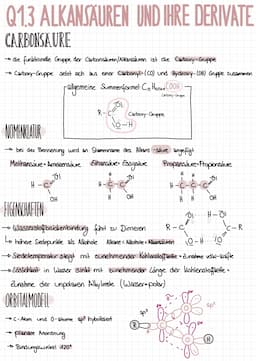 Q1.3 ALKANSÄUREN UND IHRE DERIVATE
CARBONSÄURE
→ die funktionelle Gruppe der Carbonsäuren/Alkansäuren ist die Carboxy-Gruppe
→ Carboxy-Gruppe setzt sich aus einer Carbonyl- (CO) und Hydroxy- (OH) Gruppe zusammen
allgemeine Summenformel COOH
Carboxy-Gruppe
R-C
O
O-H
Carboxy-Gruppe
NOMENKLATUR
→ bei der Benennung wird an Stammname des Alkans -säure angefügt
Methansäure - Ameisensäure Ethansäure - Essigsäure Propansäure - Propionsäure
EIGENSCHAFTEN
→ Wasserstoffbrückenbindung führt zu Dimeren
↳ höhere Siedepunkte als Alkohole Alkane < Alkohole < Alkansäuren
→ Siedetemperatur steigt mit zunehmender Kohlenstoffkette
→ Löslichkeit in Wasser sinkt mit zunehmender Länge der Kohlenstoffkette
Zunahme der unpolaren Alkylkette (Wasser = polar)
ORBITALMODELL
→ C-Atom und O-Atome sp² hybridisiert
→ planare Anordnung
→ Bindungswinkel 120°